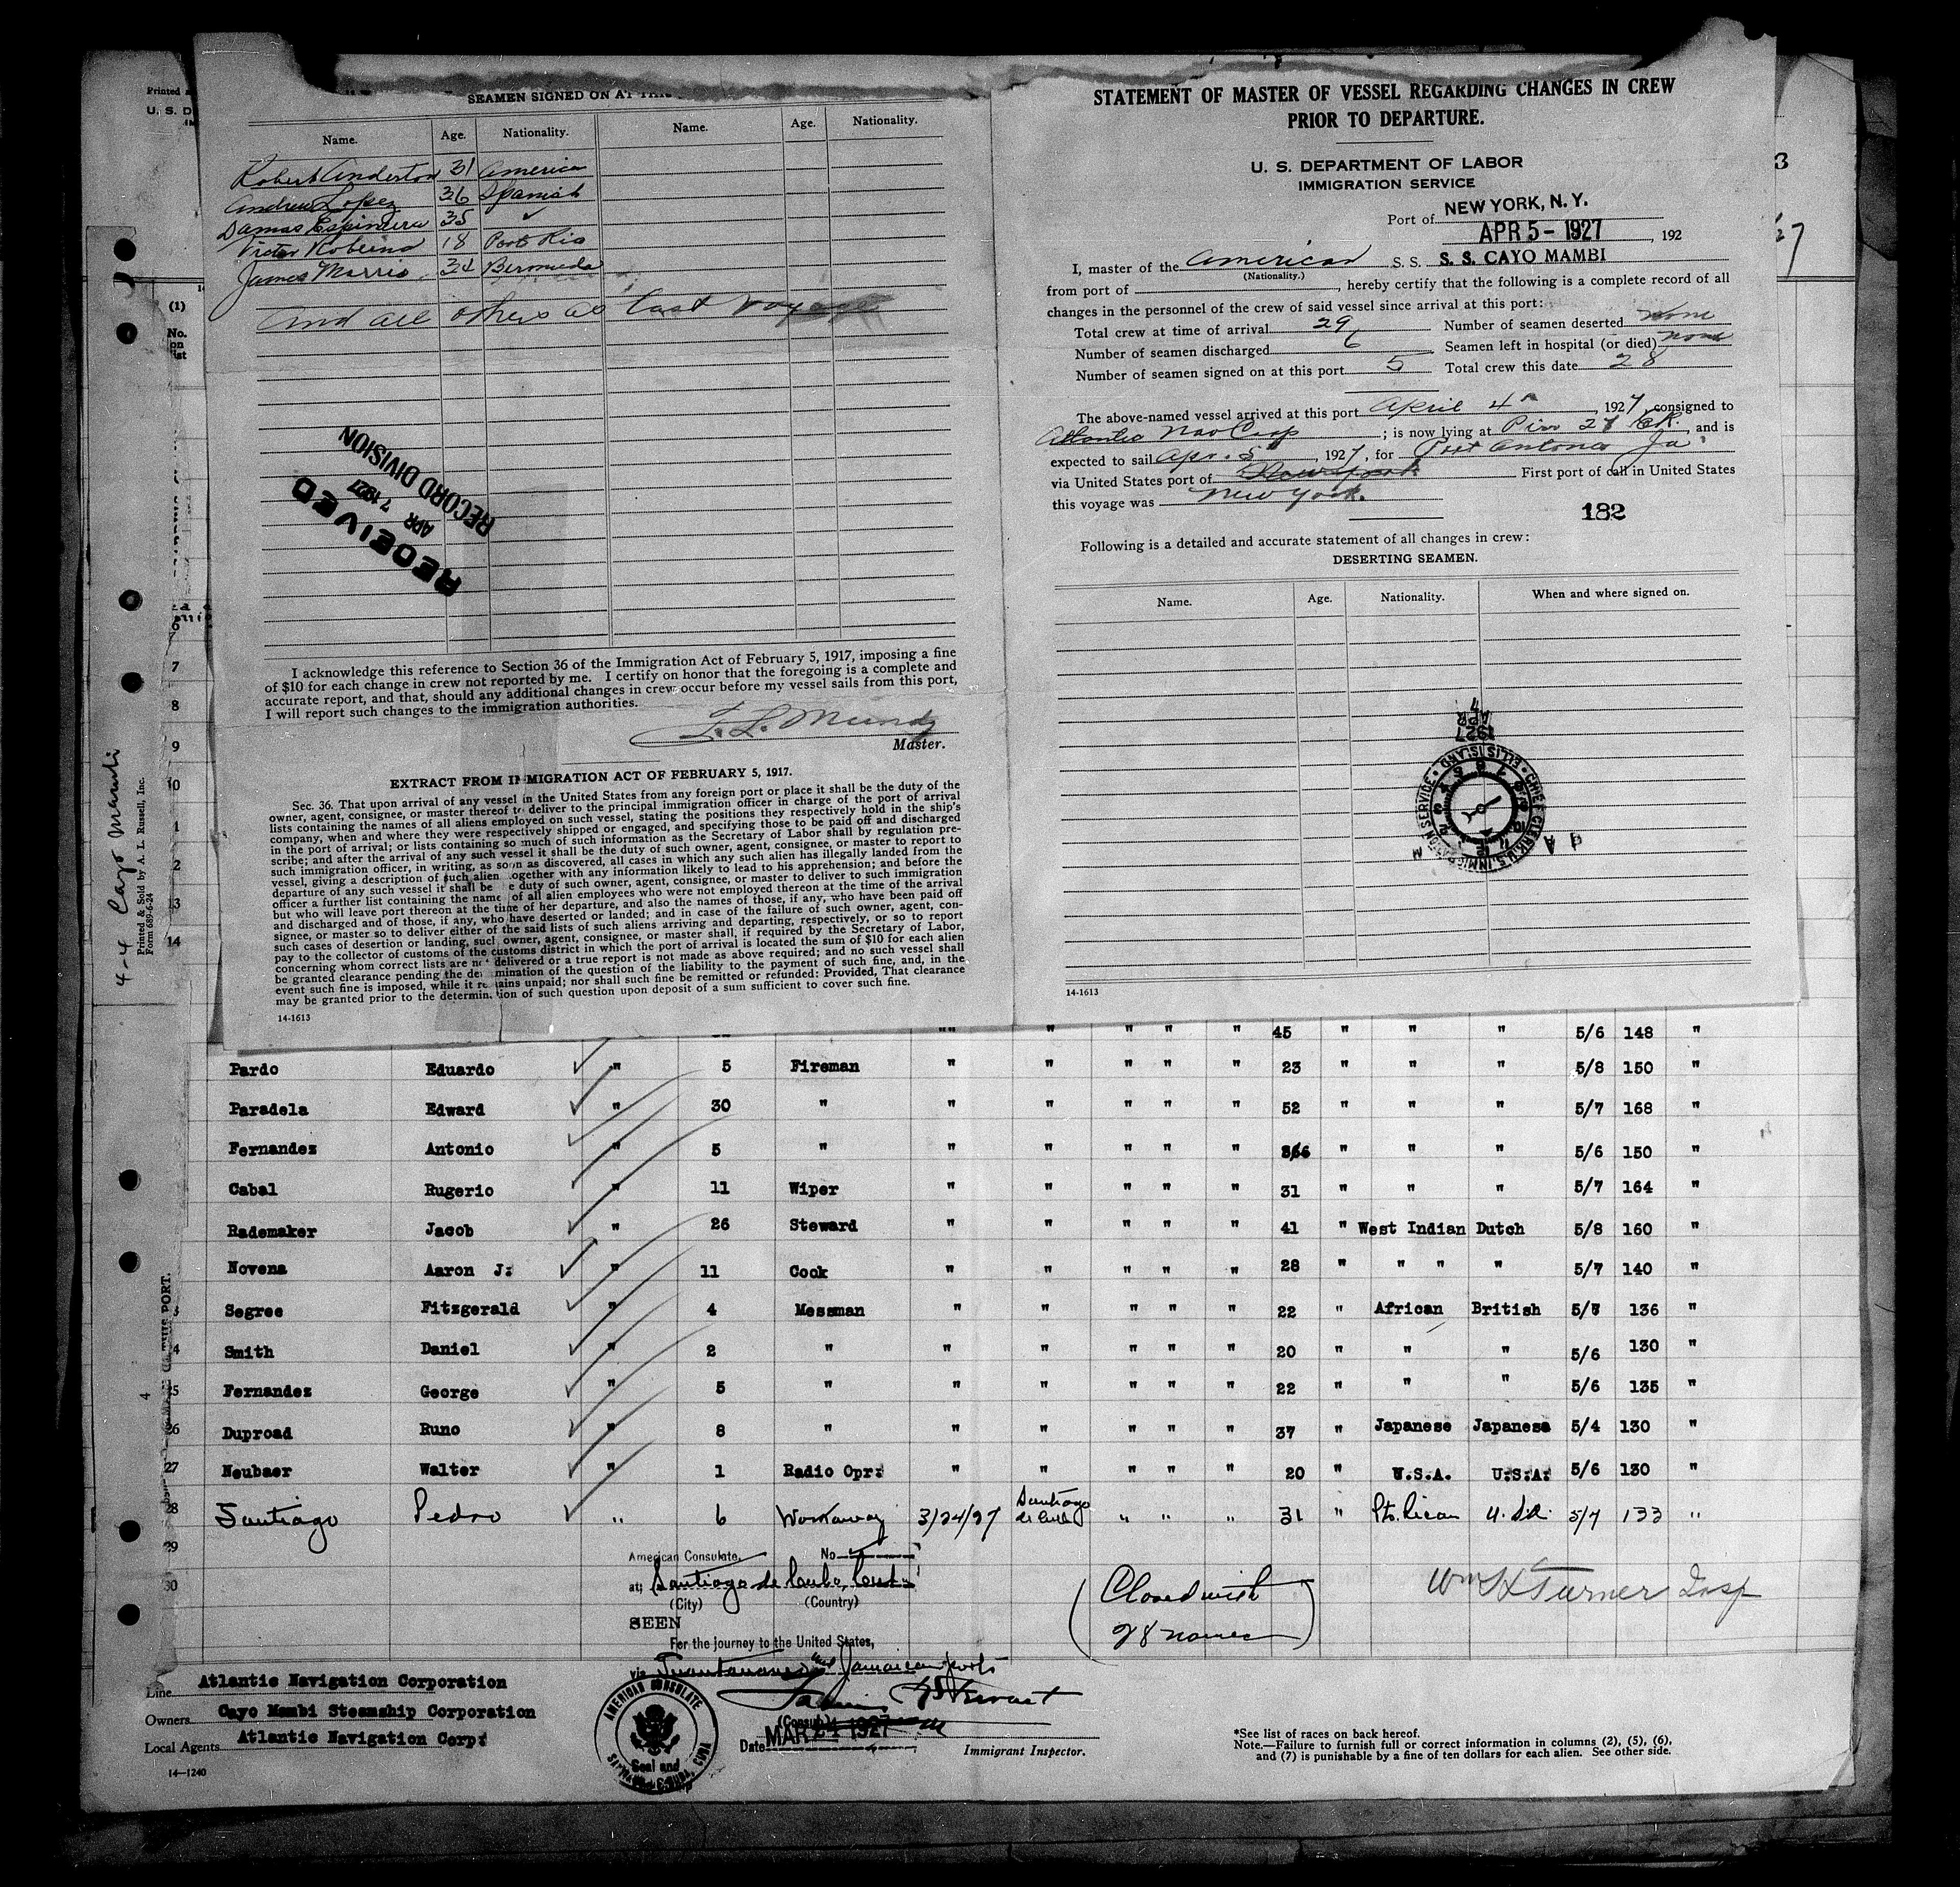 Printed
U. S. D
3
27
(1)
No.
on
list
SEAMEN SIGNED ON AT THIS
Name. Age. Nationality. Name. Age. Nationality.
Robert Anderton 31 America
Andrew Lopez 36 Spanish
Damas Espineira 35 "
Victor 18 Porto Rio
James Morris 34 Bermuda
and all others as last voyage
RECEIVED
APR 7 1927
RECORD DIVISION
I acknowledge this reference to Section 36 of the Immigration Act of February 5, 1917, imposing a fine
of $10 for each change in crew not reported by me. I certify on honor that the foregoing is a complete and
accurate report, and that, should any additional changes in crew occur before my vessel sails from this port,
I will report such changes to the immigration authorities.
Master.
EXTRACT FROM IMMIGRATION ACT OF FEBRUARY 5, 1917.
Sec. 36. That upon arrival of any vessel in the United States from any foreign port or place it shall be the duty of the
owner, agent, consignee, or master thereof to deliver to the principal immigration officer in charge of the port of arrival
lists containing the names of all aliens employed on such vessel, stating the positions they respectively hold in the ship's
company, when and where they were respectively shipped or engaged, and specifying those to be paid off and discharged
in the port of arrival; or lists containing so much of such information as the Secretary of Labor shall by regulation pre-
scribe; and after the arrival of any such vessel it shall be the duty of such owner, agent, consignee, or master to report to
such immigration officer, in writing, as soon as discovered, all cases in which any such alien has illegally landed from the
vessel, giving a description of such alien together with any information likely to lead to his apprehension; and before the
departure of any such vessel it shall be the duty of such owner, agent, consignee, or master to deliver to such immigration
officer a further list containing the names of all alien employees who were not employed thereon at the time of the arrival
but who will leave port thereon at the time of her departure, and also the names of those, if any, who have been paid off
and discharged and of those, if any, who have deserted or landed; and in case of the failure of such owner, agent, con-
signee, or master so to deliver either of the said lists of such aliens arriving and departing, respectively, or so to report
such cases of desertion or landing, such owner, agent, consignee, or master shall, if required by the Secretary of Labor,
pay to the collector of customs of the customs district in which the port of arrival is located the sum of $10 for each alien
concerning whom correct lists are not delivered or a true report is not made as above required; and no such vessel shall
be granted clearance pending the determination of the question of the liability to the payment of such fine, and, in the
event such fine is imposed, while it remains unpaid; nor shall such fine be remitted or refunded: Provided, That clearance
may be granted prior to the determination of such question upon deposit of a sum sufficient to cover such fine.
14-1613
STATEMENT OF MASTER OF VESSEL REGARDING CHANGES IN CREW
PRIOR TO DEPARTURE.
U. S. DEPARTMENT OF LABOR
IMMIGRATION SERVICE
Port of NEW YORK, N. Y.
APR 5 - 1927, 192
I, master of the American S. S. S. S. CAYO MAMBI
(Nationality.)
from port of , hereby certify that the following is a complete record of all
changes in the personnel of the crew of said vessel since arrival at this port:
Total crew at time of arrival 29 Number of seamen deserted none
Number of seamen discharged 6 Seamen left in hospital (or died) none
Number of seamen signed on at this port 5 Total crew this date 28
The above-named vessel arrived at this port April 4, 1927, consigned to
Atlantic Nav Corp ; is now lying at Pier 27 , and is
expected to sail Apr. 5, 1927, for Port Antonio Ja
via United States port of New York First port of call in United States
this voyage was New York.
182
Following is a detailed and accurate statement of all changes in crew:
DESERTING SEAMEN.
Name. Age. Nationality. When and where signed on.
1927 APR 7
CHIEF CLERK, U. S. IMMIGRATION SERVICE ELLIS ISLAND
A M 9
14-1613
4-4 Cayo Mambi
Printed & Sold by A. L. Russell, Inc.
Form 689-6-24
6
7
8
9
10
1
2
13
14
" " " " " " 45 " " " 5/6 148 "
Pardo Eduardo " 5 Fireman " " " " " 23 " " " 5/8 150 "
Paradela Edward " 30 " " " " " " 52 " " " 5/7 168 "
Fernandez Antonio " 5 " " " " " " " " " 5/6 150 "
Cabal Rugerio " 11 Wiper " " " " " 31 " " " 5/7 164 "
Rademaker Jacob " 26 Steward " " " " " 41 " West Indian Dutch 5/8 160 "
Novena Aaron J: " 11 Cook " " " " " 28 " " " " 5/7 140 "
3 Segree Fitzgerald " 4 Messman " " " " " 22 " African British 5/8 136 "
4 Smith Daniel " 2 " " " " " " 20 " " " 5/6 130 "
25 Fernandez George " 5 " " " " " " 22 " " " 5/6 135 "
26 Duproad Runo " 8 " " " " " " 37 " Japanese Japanese 5/4 130 "
27 Neubaer Walter " 1 Radio Opr: " " " " " 20 " U.S.A. U.S.A: 5/6 130 "
28 Santiago Pedro " 6 Workaway 3/24/27 Santiago de Cuba " " " 31 " Pto. Rican U.S.A. 5/7 133 "
29
30
American Consulate, No
at; Santiago de Cuba, Cuba
(City) (Country)
SEEN
For the journey to the United States,
via Guantanamo and Jamaican ports
(Closed with
28 names)
Wm H Turner Insp
AMERICAN CONSULATE
Seal and
(Consul)
Date MAR 24 1927
Immigrant Inspector.
Line Atlantic Navigation Corporation
Owners Cayo Mambi Steamship Corporation
Local Agents Atlantic Navigation Corp:
14—1240
*See list of races on back hereof.
Note.—Failure to furnish full or correct information in columns (2), (5), (6),
and (7) is punishable by a fine of ten dollars for each alien. See other side.